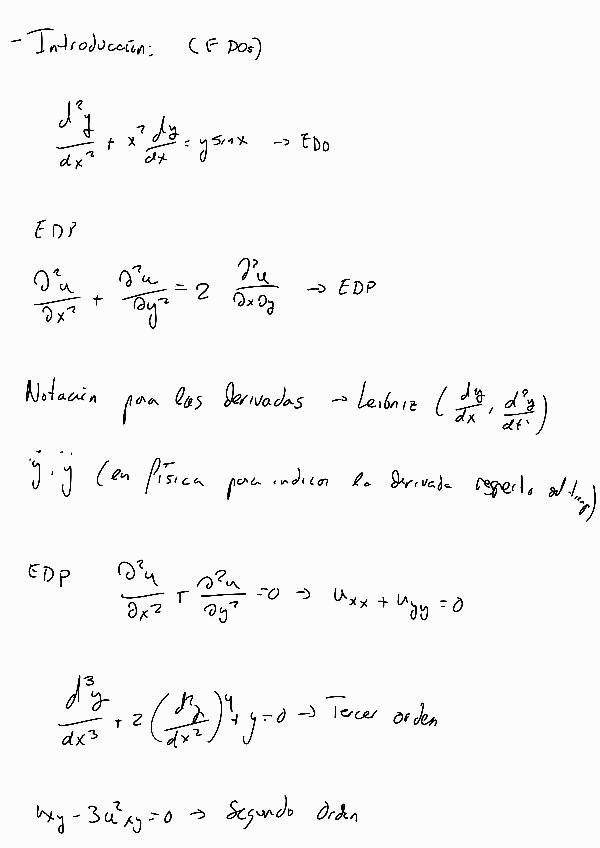 - Introducción: (EDOs)
d²y/dx² + x² dy/dx = y sin x → EDO
EDP
∂²u/∂x² + ∂²u/∂y² = 2 ∂²u/∂x∂y → EDP
Notación para las derivadas → Leibniz (dy/dx, d²y/dt²)
ÿ, ẏ (en física para indicar la derivada respecto
EDP ∂²u/∂x² + ∂²u/∂y² = 0 → uxx + uyy = 0
d³y/dx³ + 2(d²y/dx²)⁴ + y = 0 → Tercer orden
uxy - 3u²xy = 0 → Segundo Orden